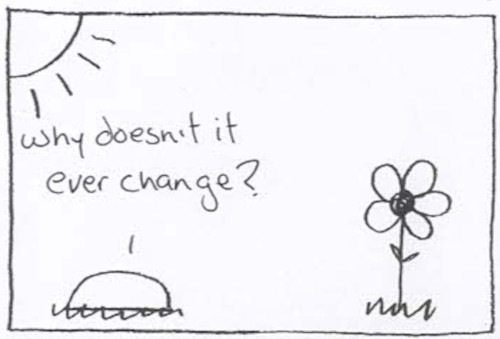 why doesn't it
ever change?